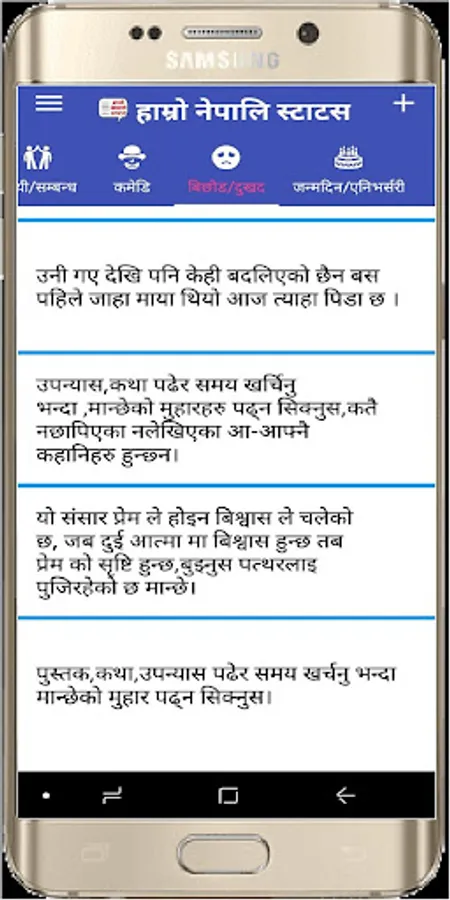 SAMSUNG
हाम्रो नेपालि स्टाटस
यी/सम्बन्ध
कमेडि
बिछोड/दुखद
जन्मदिन/एनिभर्सरी
उनी गए देखि पनि केही बदलिएको छैन बस
पहिले जाहा माया थियो आज त्याहा पिडा छ ।
उपन्यास,कथा पढेर समय खर्चिनु
भन्दा ,मान्छेको मुहारहरु पढ्न सिक्नुस,कतै
नछापिएका नलेखिएका आ-आफ्नै
कहानिहरु हुन्छ्न।
यो संसार प्रेम ले होइन बिश्वास ले चलेको
छ, जब दुई आत्मा मा बिश्वास हुन्छ तब
प्रेम को सृष्टि हुन्छ,बुझ्नुस पत्थरलाइ
पुजिरहेको छ मान्छे।
पुस्तक,कथा,उपन्यास पढेर समय खर्चनु भन्दा
मान्छेको मुहार पढ्न सिक्नुस।